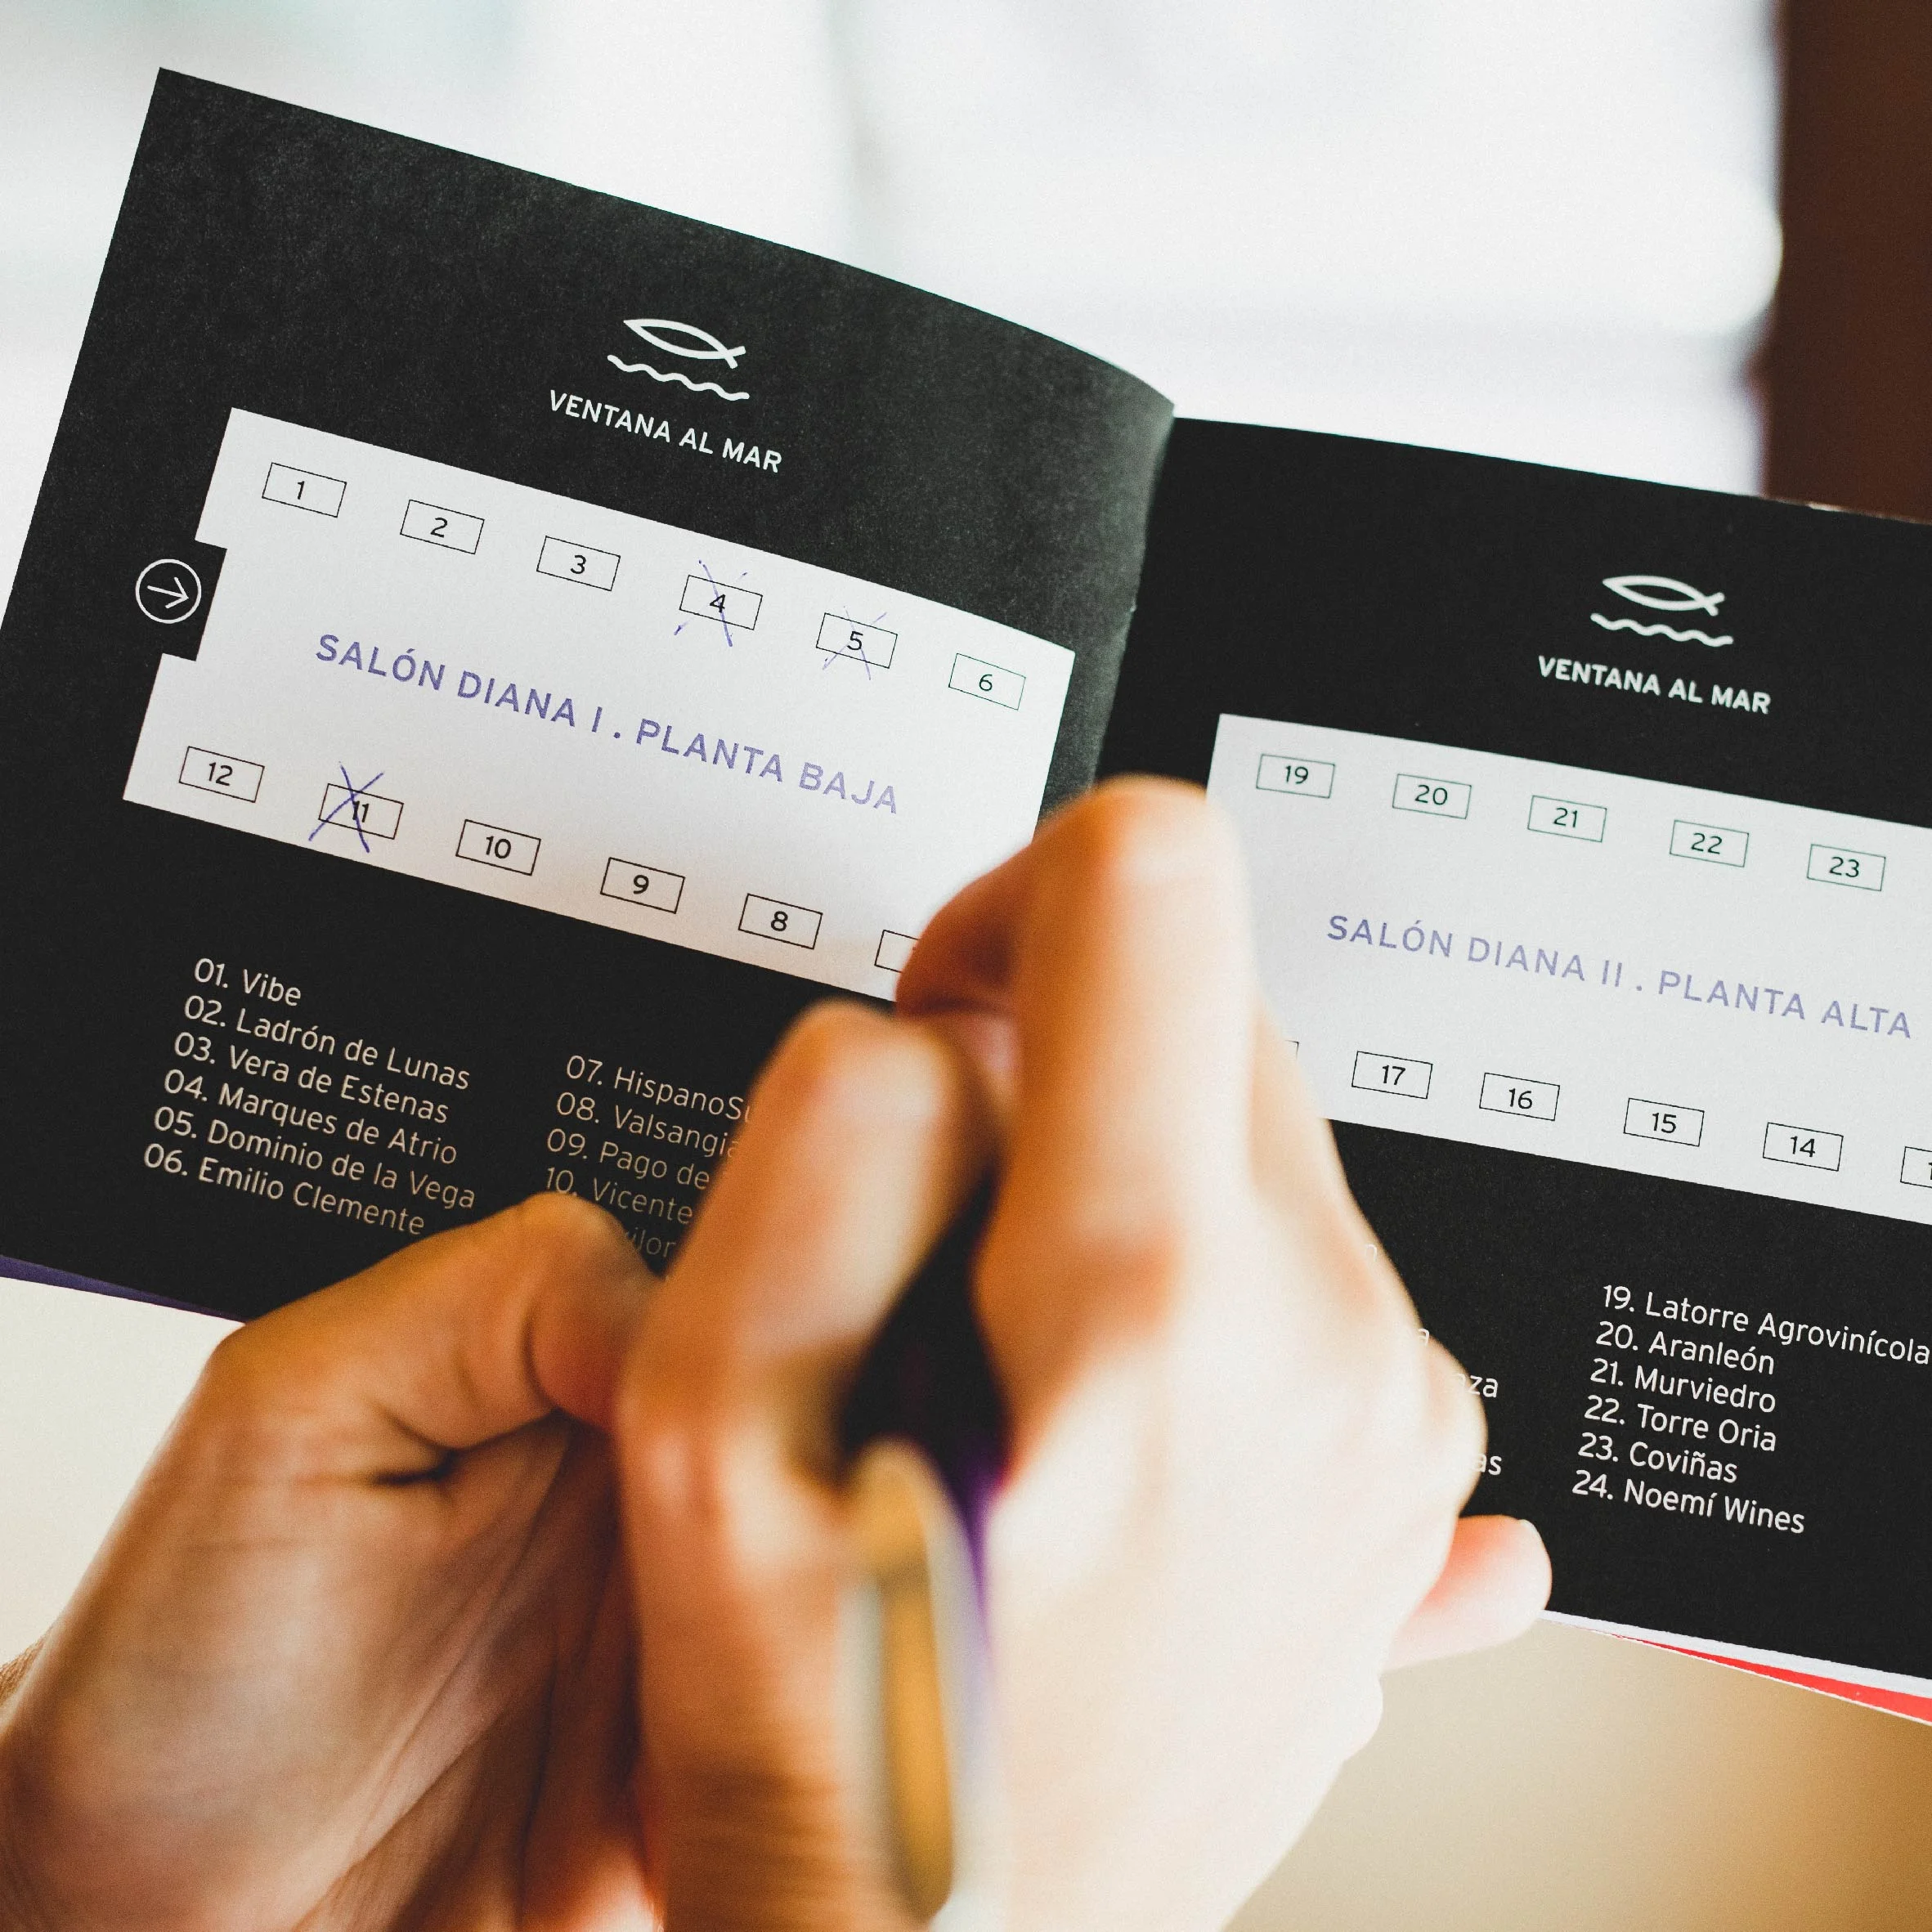 VENTANA AL MAR
1 2 3 4 5 6
SALÓN DIANA I . PLANTA BAJA
12 11 10 9 8
01. Vibe
02. Ladrón de Lunas
03. Vera de Estenas
04. Marques de Atrio
05. Dominio de la Vega
06. Emilio Clemente
07.
08.
09. Pago de
10. Vicente
VENTANA AL MAR
19 20 21 22 23
SALÓN DIANA II . PLANTA ALTA
17 16 15 14
19. Latorre Agrovinícola
20. Aranleón
21. Murviedro
22. Torre Oria
23. Coviñas
24. Noemí Wines